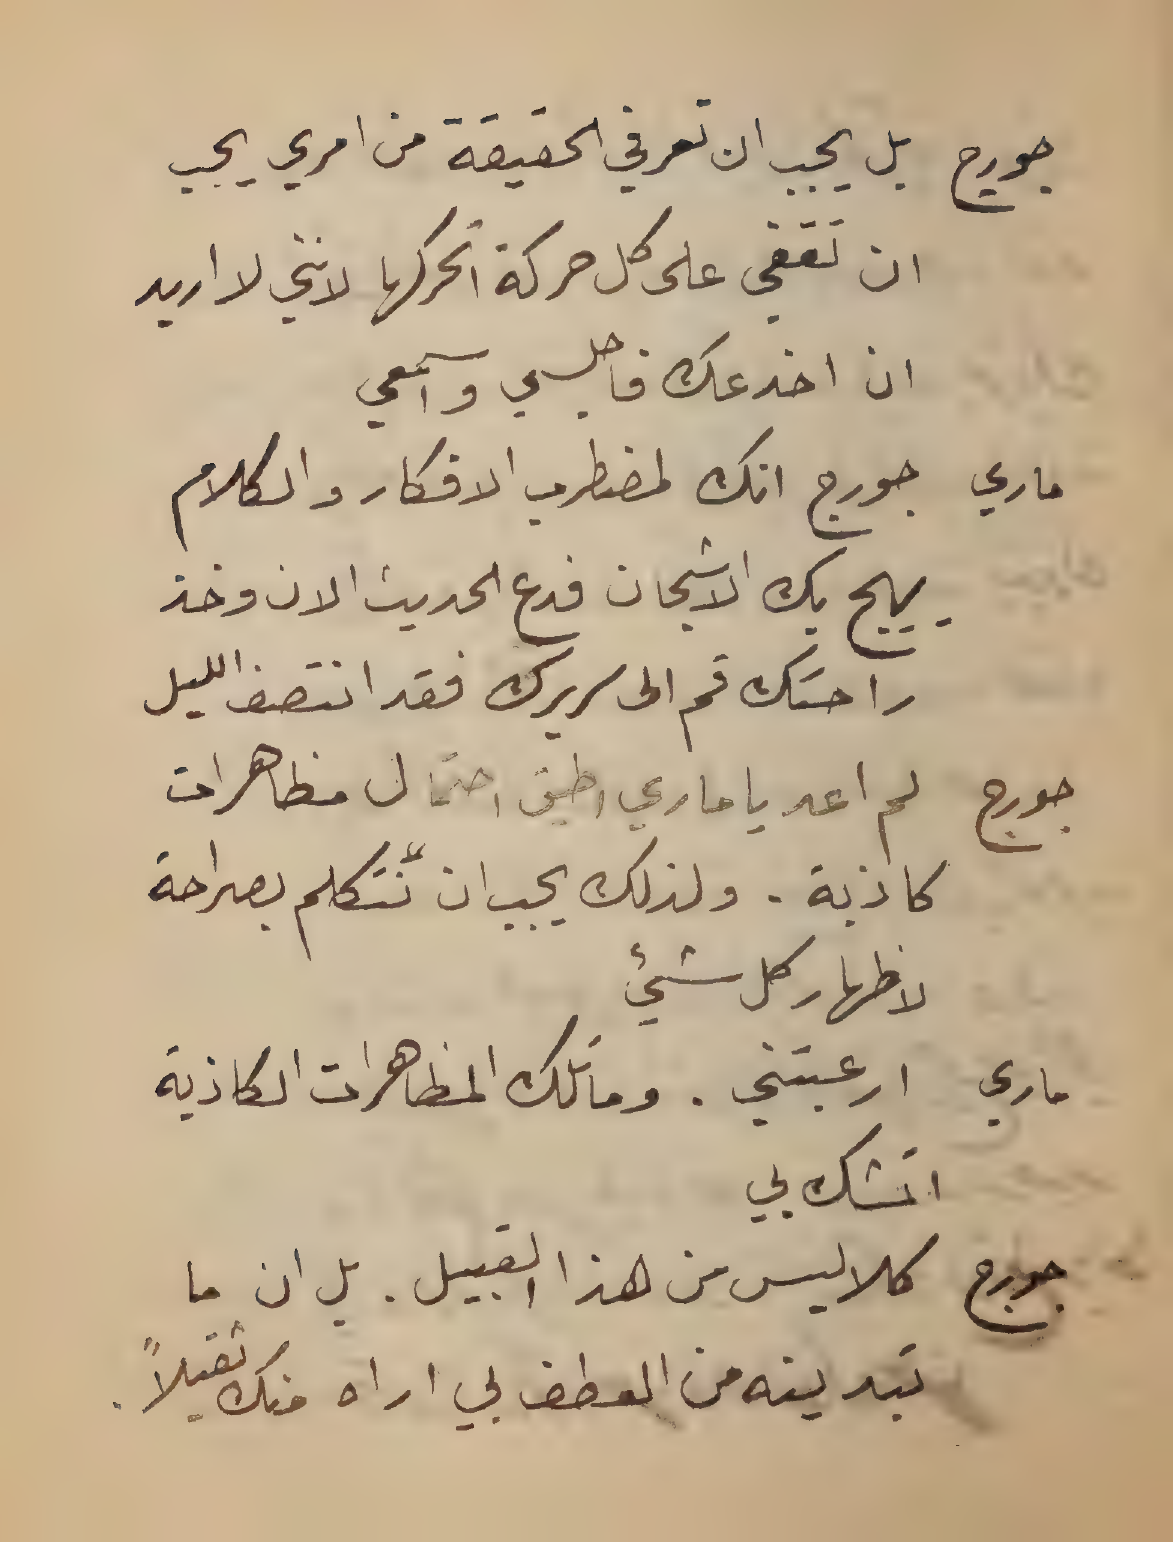 جورج بل يجب ان تعرفي الحقيقة من امري يجب
ان تقفي على كل حركة اتحركها لانني لا اريد
ان اخدعك فاجلسي واسمعي
ماري جورج انك لمضطرب الافكار والكلام
يهيج بك الاشجان فدع الحديث الان وخذ
راحتك قم الى سريرك فقد انتصف الليل
جورج لم اعد يا ماري اطيق احتمال مظاهرات
كاذبة . ولذلك يجب ان نتكلم بصراحة
لاظهار كل شيئ
ماري ارعبتني . وما تلك المظاهرات الكاذبة
اتشك بي
جورج كلا ليس من هذا القبيل . بل ان ما
تبدينه من العطف بي اراه منك ثقيلاً .